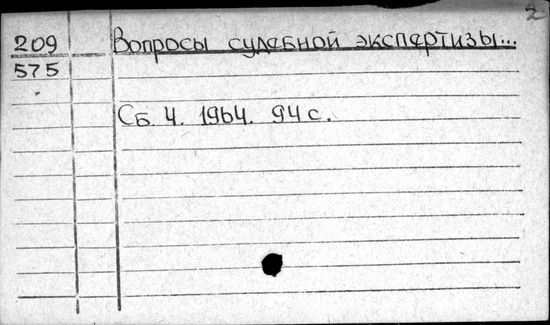 2
209 Вопросы судебной экспертизы...
575
Сб. 4. 1964. 94 с.